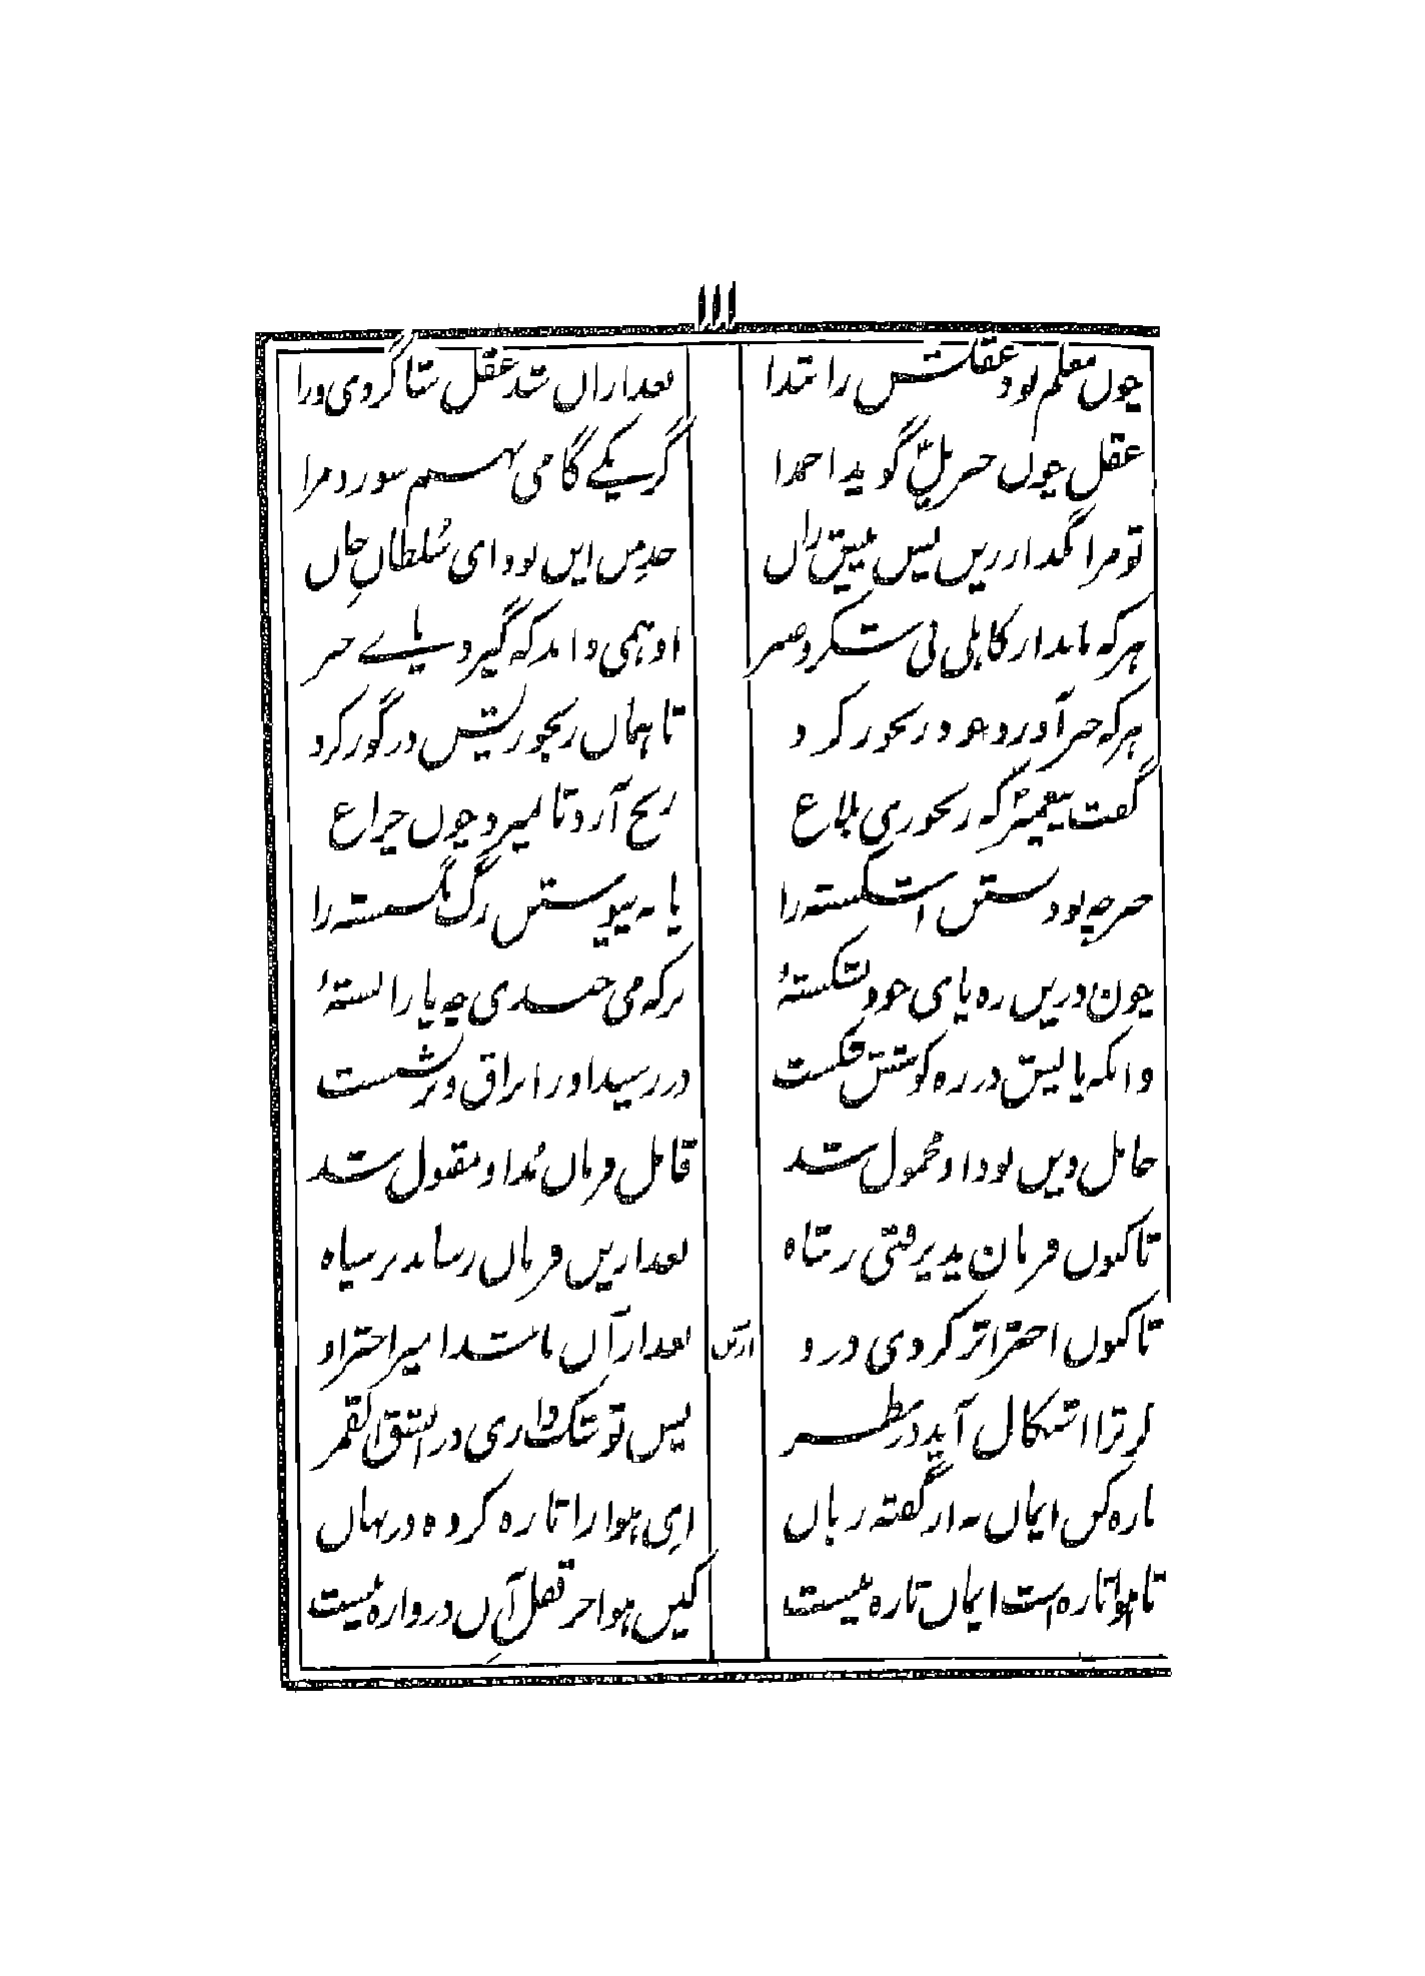 ۱۱۱
چوں معلم بود عقلش را بتدا بعد ازاں شد عقل شاگردی ورا
عقل چوں جبریلؑ گوید احمدا گر یکے گامی نہم سوزد مرا
تو مرا بگذار زیں پس پیش راں حدِ من ایں بود ای سُلطانِ جاں
ہرکہ ماند از کاہلی بی شکر و صبر او ہمی داند کہ گیرد پاے جبر
ہرکہ جبر آورد خود رنجور کرد تا ہماں رنجوریش در گور کرد
گفت پیغمبرؐ کہ رنجوری بلاغ رنج آرد تا بمیرد چوں چراغ
جبر چہ بود بستن اشکستہ را یا بہ پیوستن رگ بگسستہ را
چون دریں رہ پای خود نشکستۂ بر کہ می خندی چہ پا را بستۂ
وانکہ پایش در رہ کوشش شکست در رسید او را براق و بر نشست
حامل دیں بود او محمول شد قابل فرماں بُد او مقبول شد
تا کنوں فرمان پذیرفتی ز شاہ بعد ازیں فرماں رساند بر سپاہ
تا کنوں اختر اثر کردی درو بعد ازآں باشد امیر اختر او
ازیں
گر ترا اشکال آید در نظر پس تو شک داری در انشق القمر
تازہ کن ایماں نہ از گفتہ زباں ای ہوا را تازہ کردہ در نہاں
تا ہوا تازہ است ایماں تازہ نیست کیں ہوا جز قفل آں دروازہ نیست